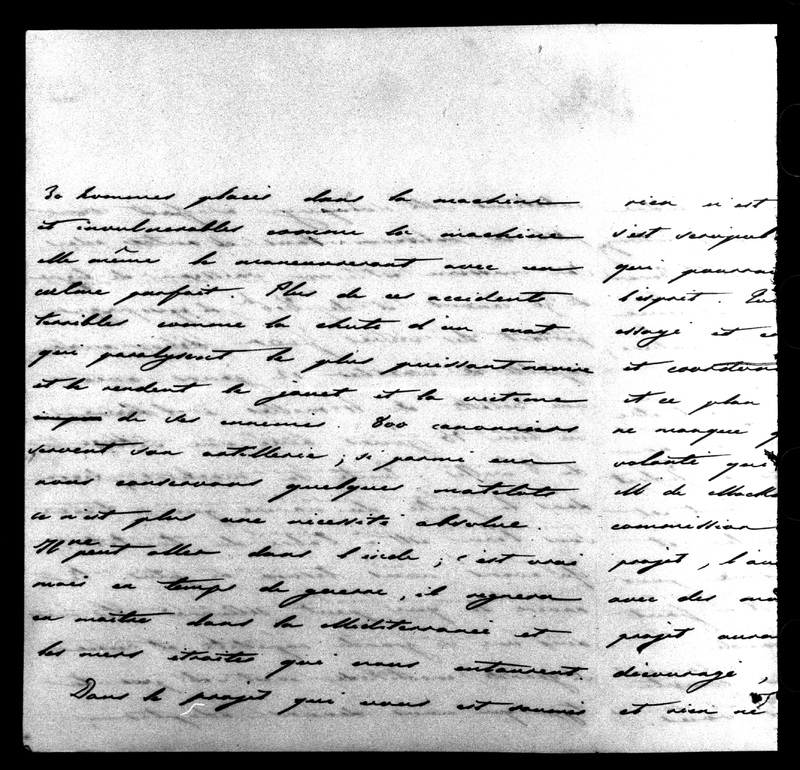 30 hommes placés dans la machine
et invulnérables comme la machine
elle même la manoeuvreront avec un
calme parfait. Plus de ces accidents
terribles comme la chute d'un mat
qui paralysent le plus puissant navire
et le rendent le jouet et la victime
de ses ennemis. 800 canonniers
servent son artillerie ; si parmi eux
nous conservons quelques matelots
ce n'est plus une nécessité absolue.
peut aller dans l'inde ; c'est vrai
mais en temps de guerre, il régnera
en maître dans la Méditerranée et
les mers étroites qui nous entourent.
Dans le projet qui vous est soumis
rien n'est
s'est
qui pourrai
l'esprit.
essayé et
et
et ce plan
ne manque
volonté qui
M de
commission
projet, l'au
avec des
projet
découragé,
et rien ne